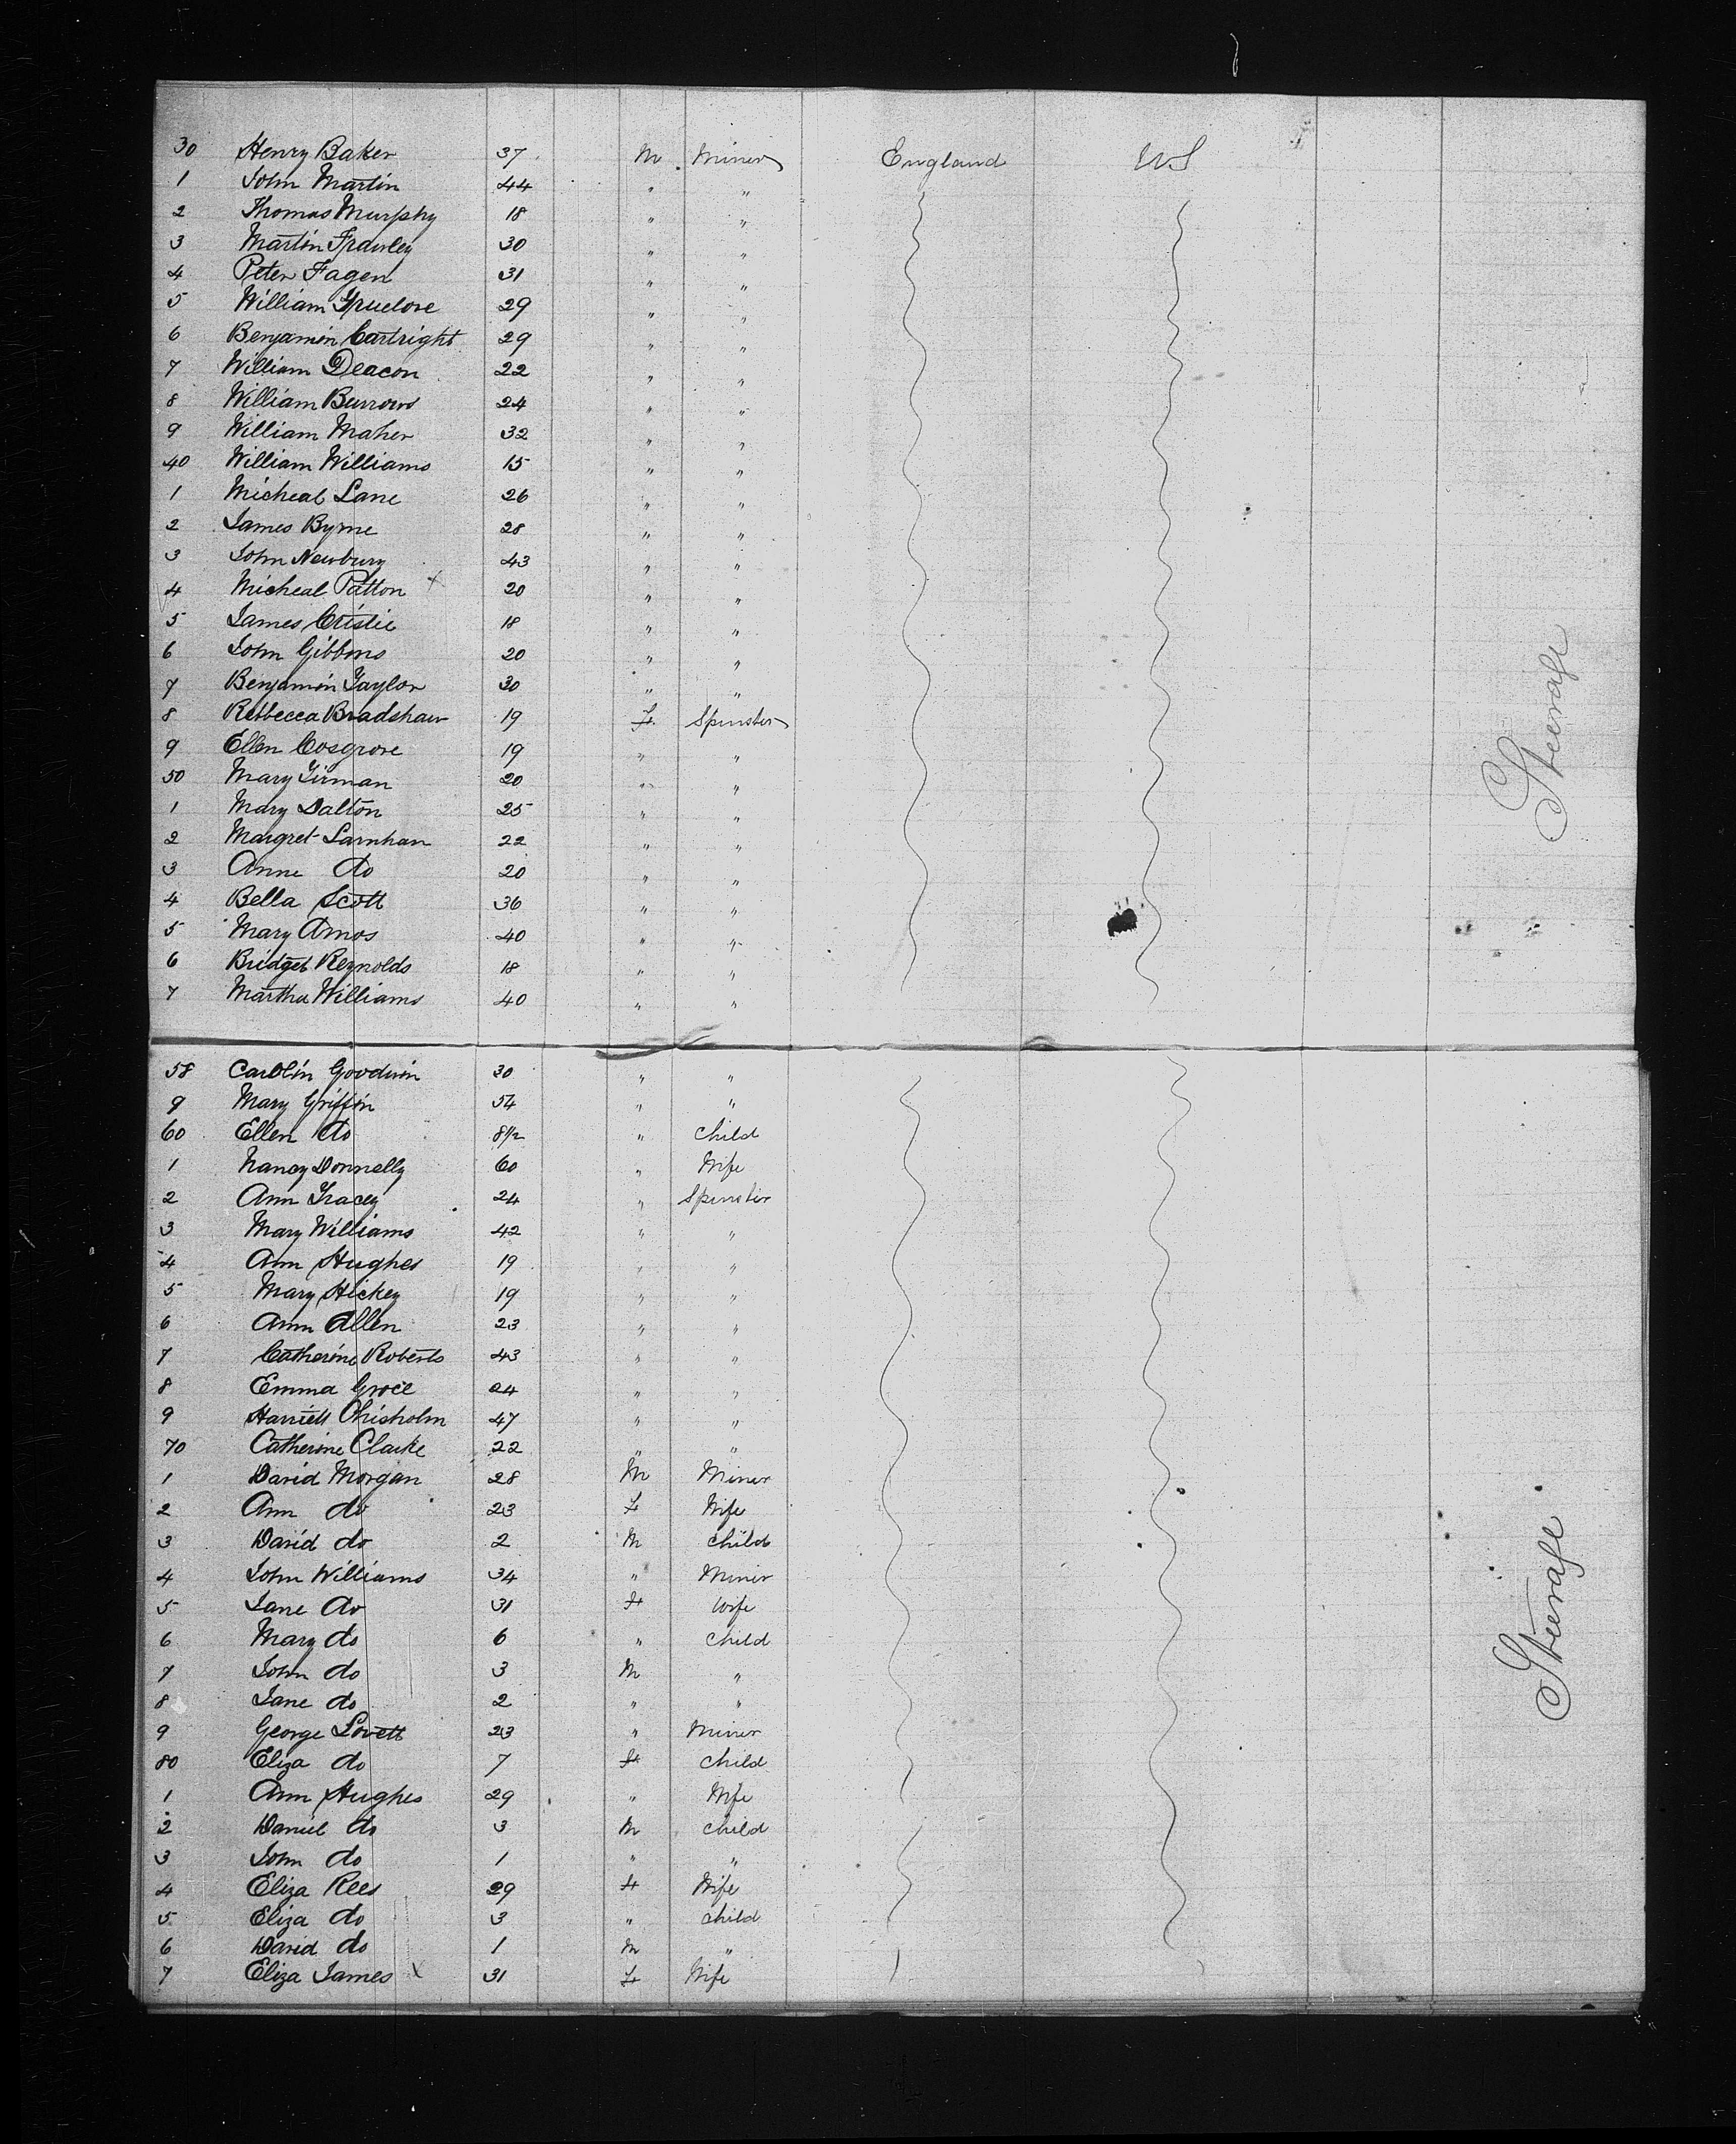 30 Henry Baker 37 M Miner England US
1 John Martin 44 " "
2 Thomas Murphy 18 " "
3 Martin Frawley 30 " "
4 Peter Fagen 31 " "
5 William 29 " "
6 Benjamin Cartright 29 " "
7 William Deacon 22 " "
8 William Burrows 24 " "
9 William Maher 32 " "
40 William Williams 15 " "
1 Micheal Lane 26 " "
2 James Byrne 28 " "
3 John Newbury 43 " "
4 Micheal Patton x 20 " "
5 James Cristie 18 " "
6 John Gibbons 20 " "
7 Benjamin Taylor 30 " "
8 Rebbecca Bradshaw 19 F Spinster
9 Ellen Cosgrove 19 " "
50 Mary Tirman 20 " "
1 Mary Dalton 25 " "
2 Margret Larnhan 22 " "
3 Anne do 20 " "
4 Bella Scott 36 " "
5 Mary Amos 40 " "
6 Bridget Reynolds 18 " "
7 Martha Williams 40 " "
Steerage
58 Carolin Goodwin 30 " "
9 Mary Griffin 54 " "
60 Ellen do 8½ " Child
1 Nancy Donnelly 60 " Wife
2 Ann Tracey 24 " Spinster
3 Mary Williams 42 " "
4 Ann Hughes 19 " "
5 Mary Hickey 19 " "
6 Ann Allen 23 " "
7 Catherine Roberts 43 " "
8 Emma 24 " "
9 Harriett Chisholm 47 " "
70 Catherine Clarke 22 " "
1 David Morgan 28 M Miner
2 Ann do 23 F Wife
3 David do 2 M Child
4 John Williams 34 " Miner
5 Jane do 31 F Wife
6 Mary do 6 " Child
7 John do 3 M "
8 Jane do 2 " "
9 George Lovett 23 " Miner
80 Eliza do 7 F Child
1 Ann Hughes 29 " Wife
2 Daniel do 3 M Child
3 John do 1 " "
4 Eliza Rees 29 F Wife
5 Eliza do 3 " Child
6 David do 1 M "
7 Eliza James x 31 F Wife
Steerage